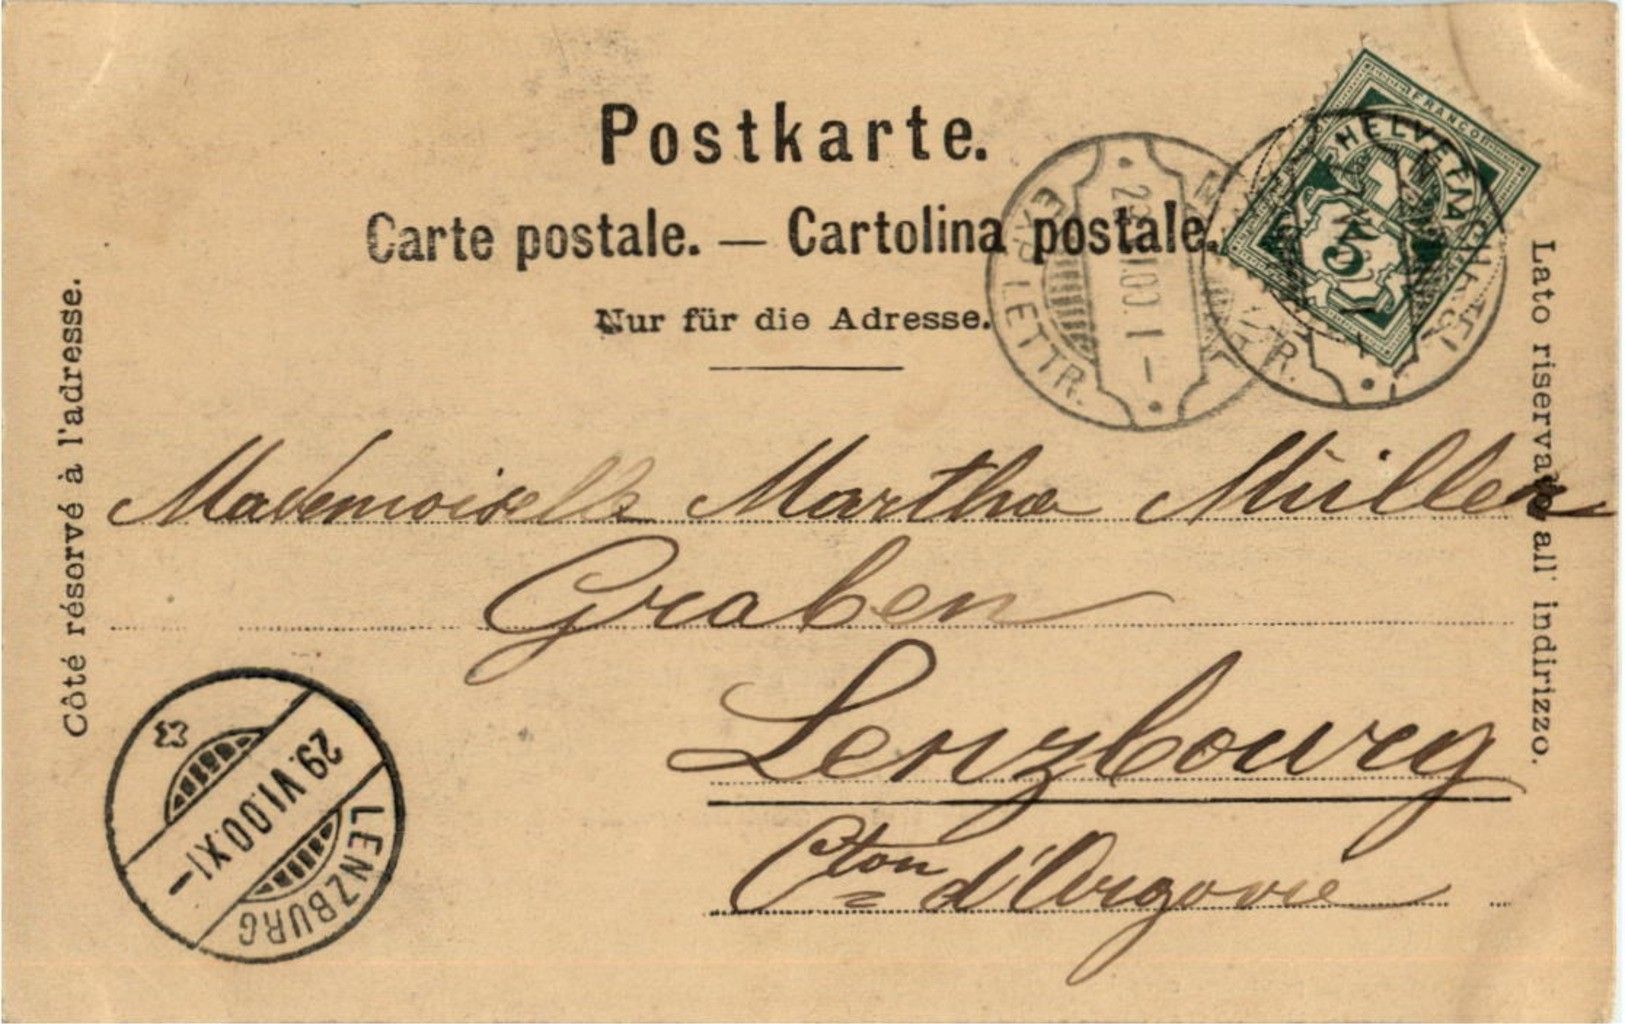 Postkarte.
Carte postale. — Cartolina postale.
Nur für die Adresse.
Côté résorvé à l'adresse.
Lato riservato all' indirizzo.
FRANCO
HELVETIA
5
EXP. LETTR.
LETTR.
Mademoiselle Martha Müller
Graben
Lenzbourg
Cton d'Argovie
29.VI.00.XI–
LENZBURG